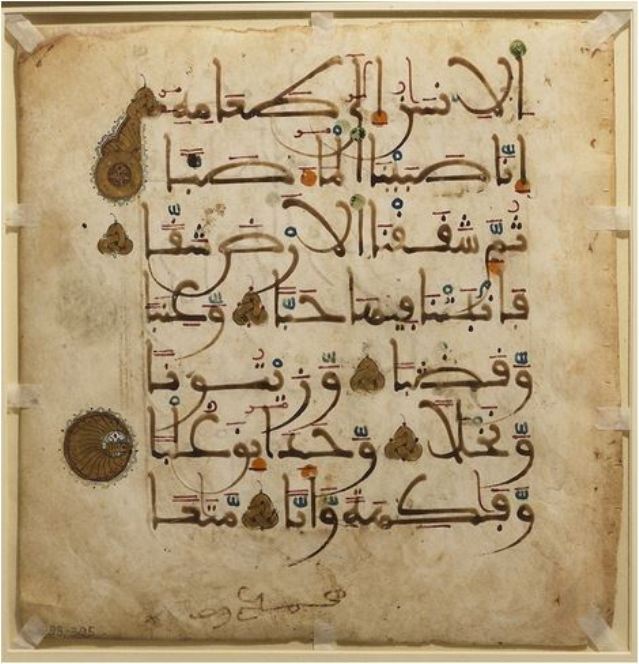 اِ۬لِانسَٰنُ إِلَىٰ طَعَامِهِۦ
إِنَّا صَبَبْنَا اَ۬لْمَآءَ صَبّاً
ثُمَّ شَقَقْنَا اَ۬لَارْضَ شَقّاً
فَأَنۢبَتْنَا فِيهَا حَبّاً وَعِنَباً
وَقَضْباً وَزَيْتُوناً
وَنَخْلاً وَحَدَآئِقَ غُلْباً
وَفَٰكِهَةً وَأَبّاً مَّتَٰعاً